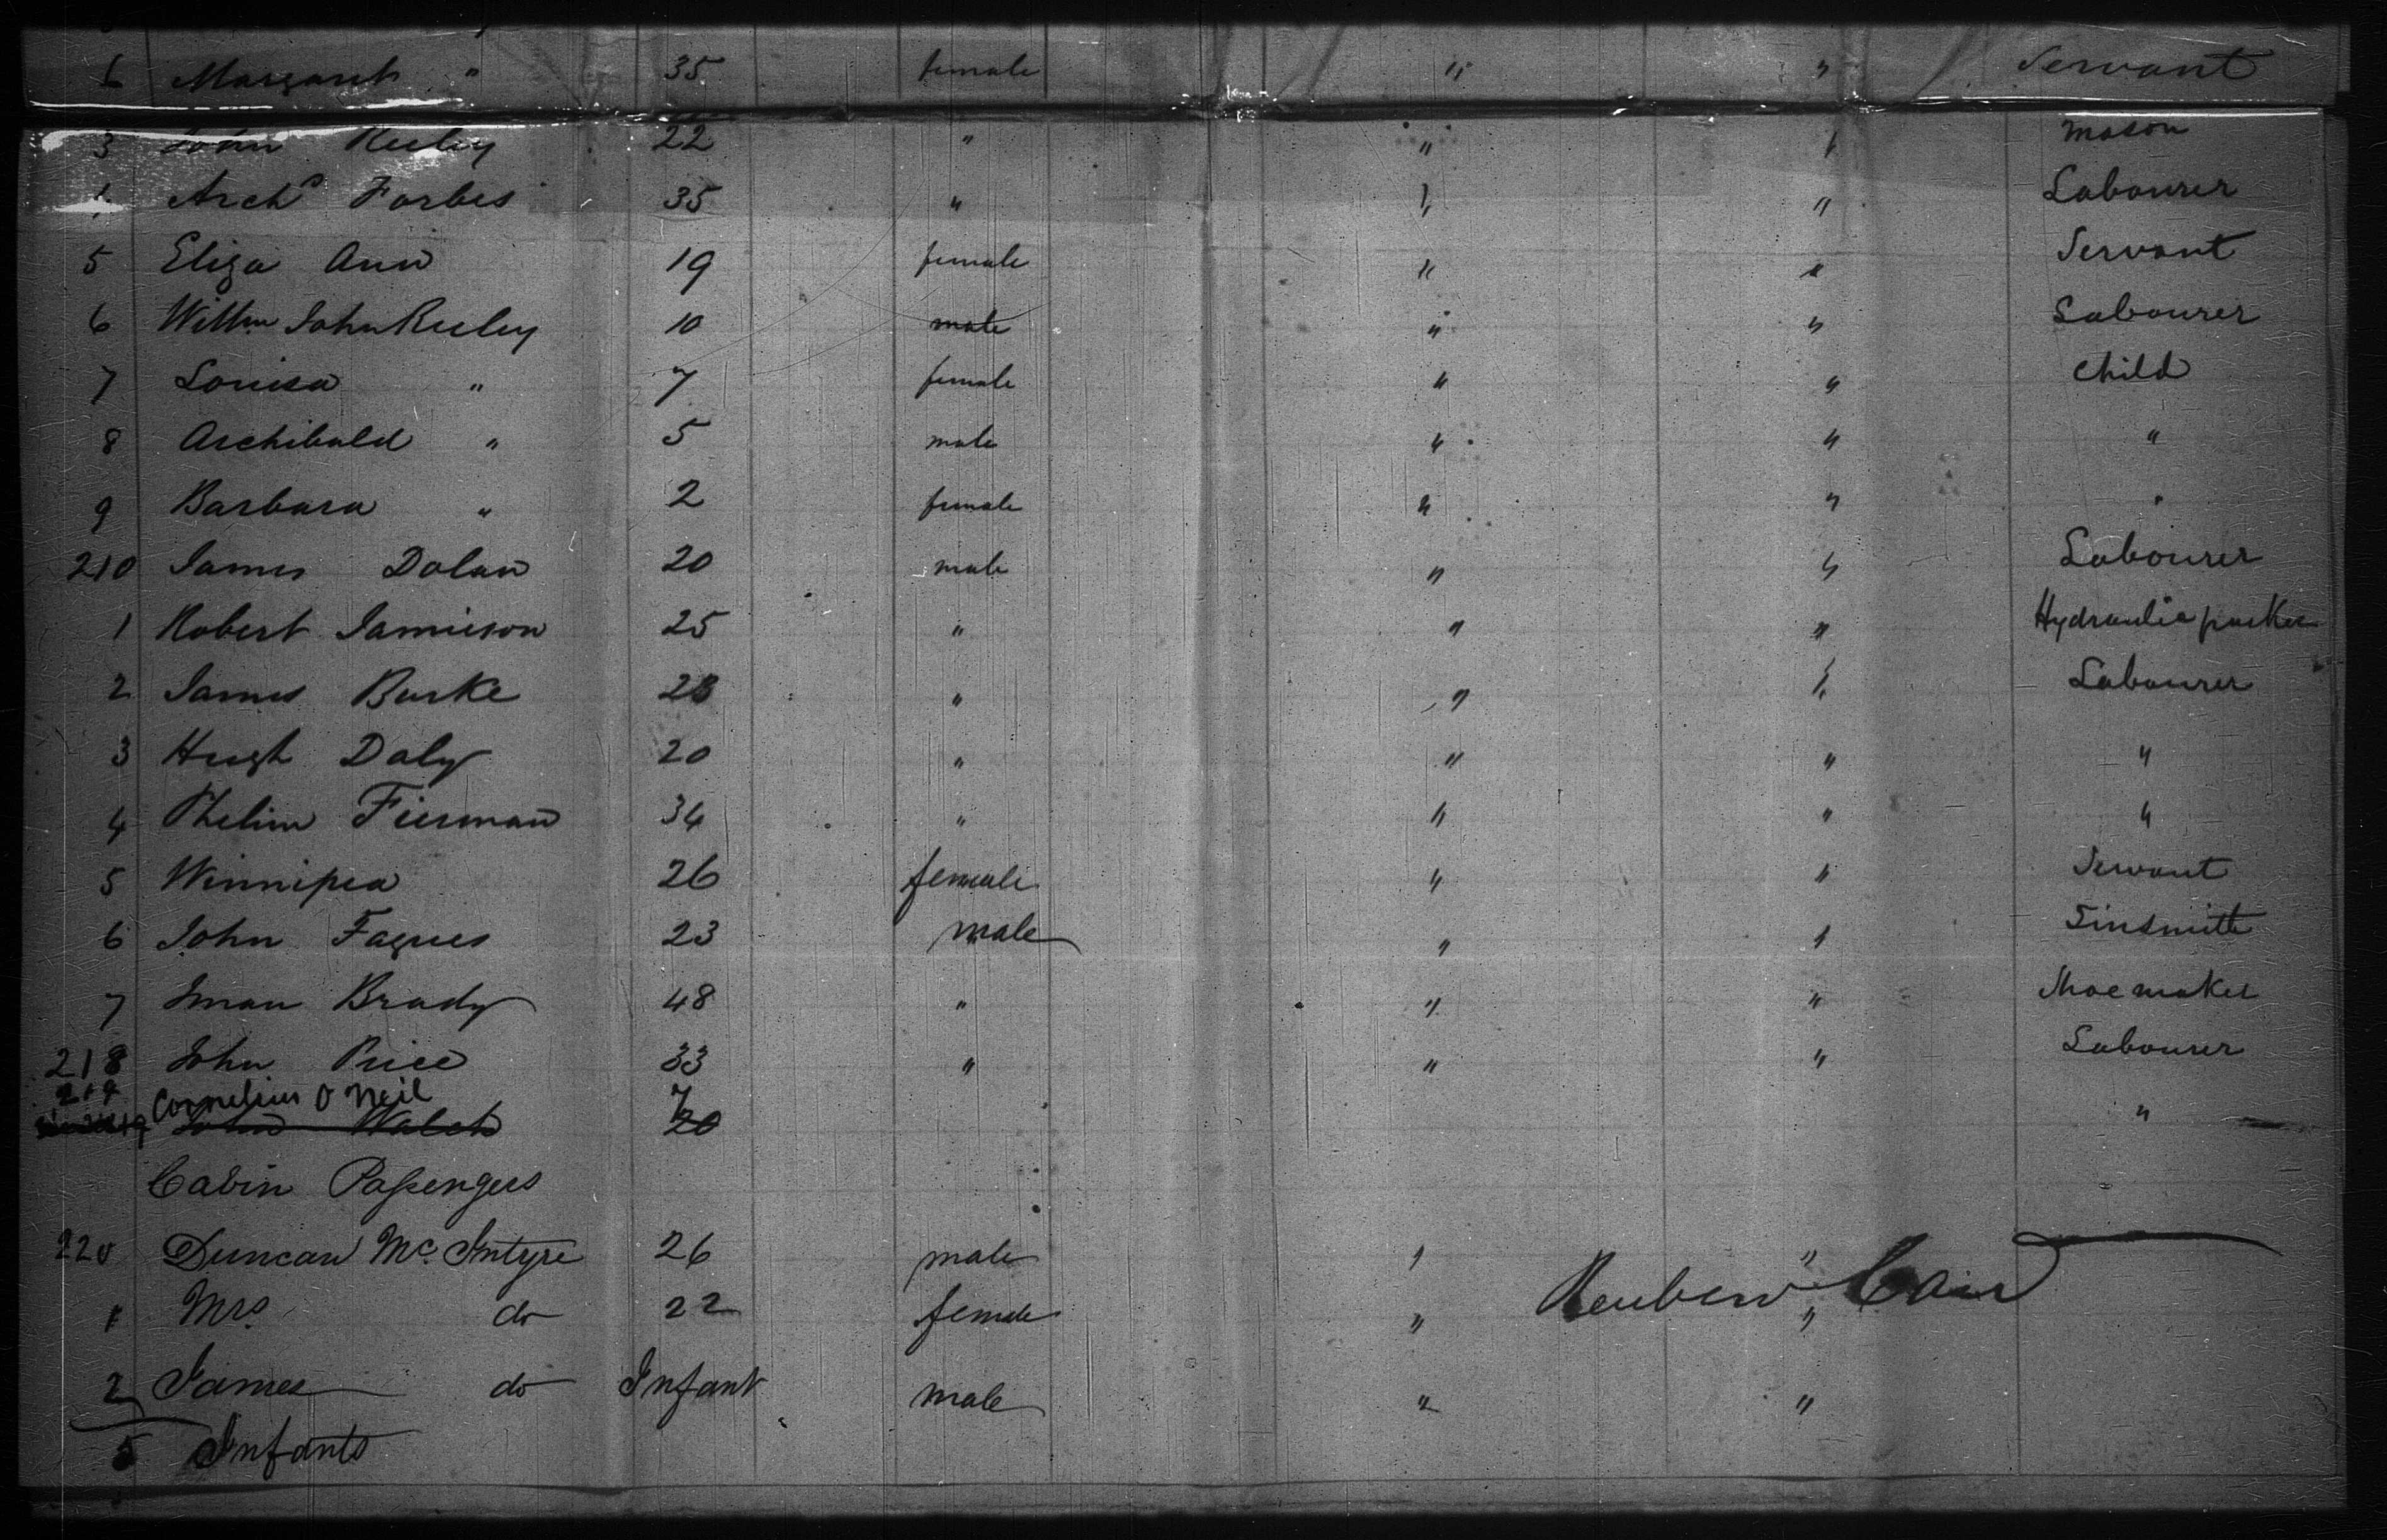 6 Margaret " 35 female " " Servant
3 John Reeley 22 " " " Mason
4 Archd Forbes 35 " " " Labourer
5 Eliza Ann 19 female " " Servant
6 Willm John Reeley 10 male " " Labourer
7 Louisa " 7 female " " Child
8 Archibald " 5 male " " "
9 Barbara " 2 female " " "
210 James Dolan 20 male " " Labourer
1 Robert Jamieson 25 " " " Hydraulic packer
2 James Burke 28 " " " Labourer
3 Hugh Daly 20 " " " "
4 Phelim Fierman 34 " " " "
5 Winnipea 26 female " " Servant
6 John Fagues 23 male " " Tinsmith
7 Iman Brady 48 " " " Shoemaker
218 John Price 33 " " " Labourer
219 Cornelius O Neil 7
John Walsh 20 "
Cabin Passengers
220 Duncan McIntyre 26 male " "
Reuben Cain
1 Mrs do 22 female " "
2 James do Infant male " "
5 Infants